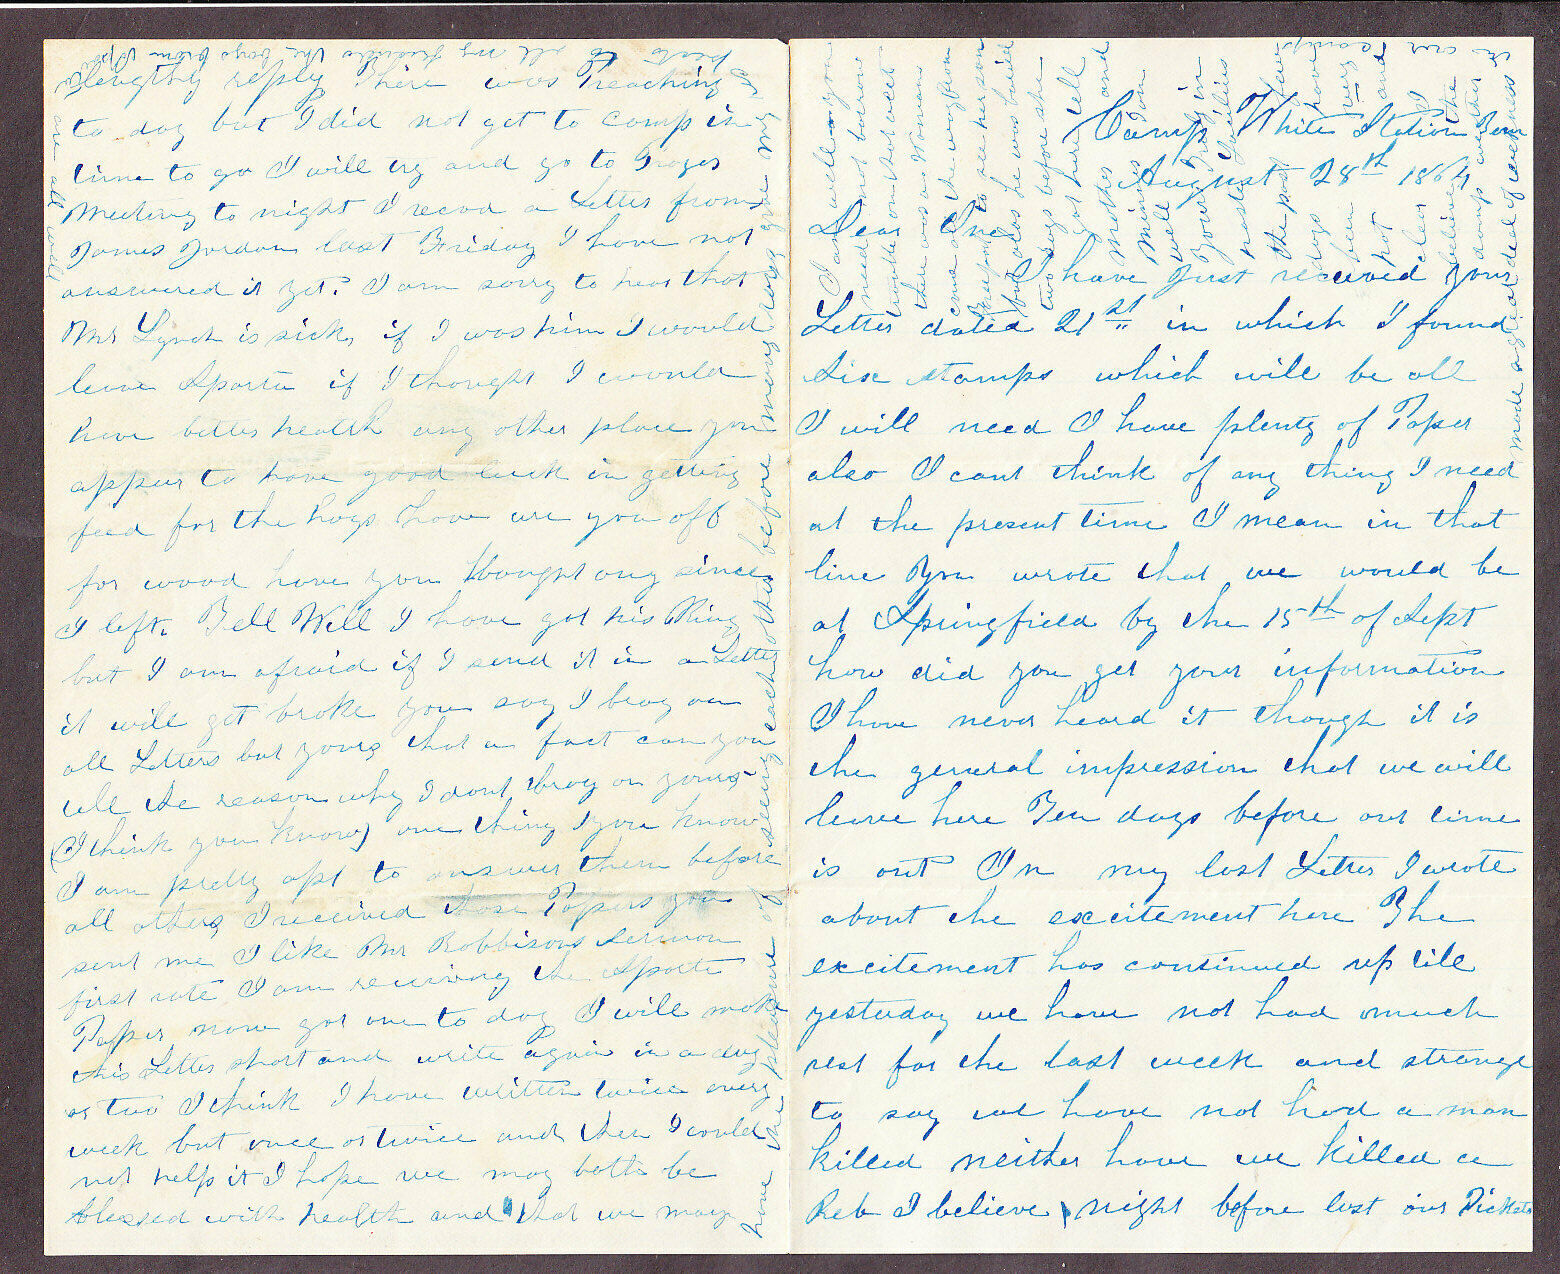 Camp White Station Tenn
August 28th 1864
Dear Jno
I have just received your
Letter dated 21st in which I found
Six stamps which will be all
I will need I have plenty of Paper
also I cant think of any thing I need
at the present time I mean in that
line You wrote that we would be
at Springfield by the 15th of Sept
how did you get your information
I have never heard it though it is
the general impression that we will
leave here Ten days before our time
is out In my last Letter I wrote
about the excitement here The
excitement has continued up till
yesterday we have not had much
rest for the last week and strange
to say we have not had a man
killed neither have we killed a
Reb I believe night before last our Pickets
lengthy reply There was Preaching
to day but I did not get to camp in
time to go I will try and go to
Meeting to night I recvd a Letter from
James Jordan last Friday I have not
answered it yet. I am sorry to hear that
Mr Lynch is sick, if I was him I would
leave Sparta if I thought I would
have better health any other place you
appear to have good luck in getting
feed for the hogs how are you off
for wood have you bought any since
I left. Tell Will I have got his Ring
but I am afraid if I send it in a Letter
it will get broke you say I brag on
all Letters but yours, that a fact can you
tell the reason why I dont brag on yours
(I think you know) one thing you know
I am pretty apt to answer them before
all others, I received those Papers you
sent me I like Mr Robbisons Sermon
first rate I am receiving the Sparta
Paper now got one to day I will make
this Letter short and write again in a day
or two I think I have written twice every
week but once or twice and then I could
not help it I hope we may both be
blessed with health and that we may
have the pleasure of seeing each other before many days give my
to all my friends the boys from
are all well
I am well you
need not borrow
trouble on that acct
there was a Womans
come all the way from
to see her son
but alas he was buried
two days before she
got here tell
Mother and
well
Yours Truly in
haste
the past few
days have
been very
hot and
I
believe the
camp under
is our camps
made a great deal of